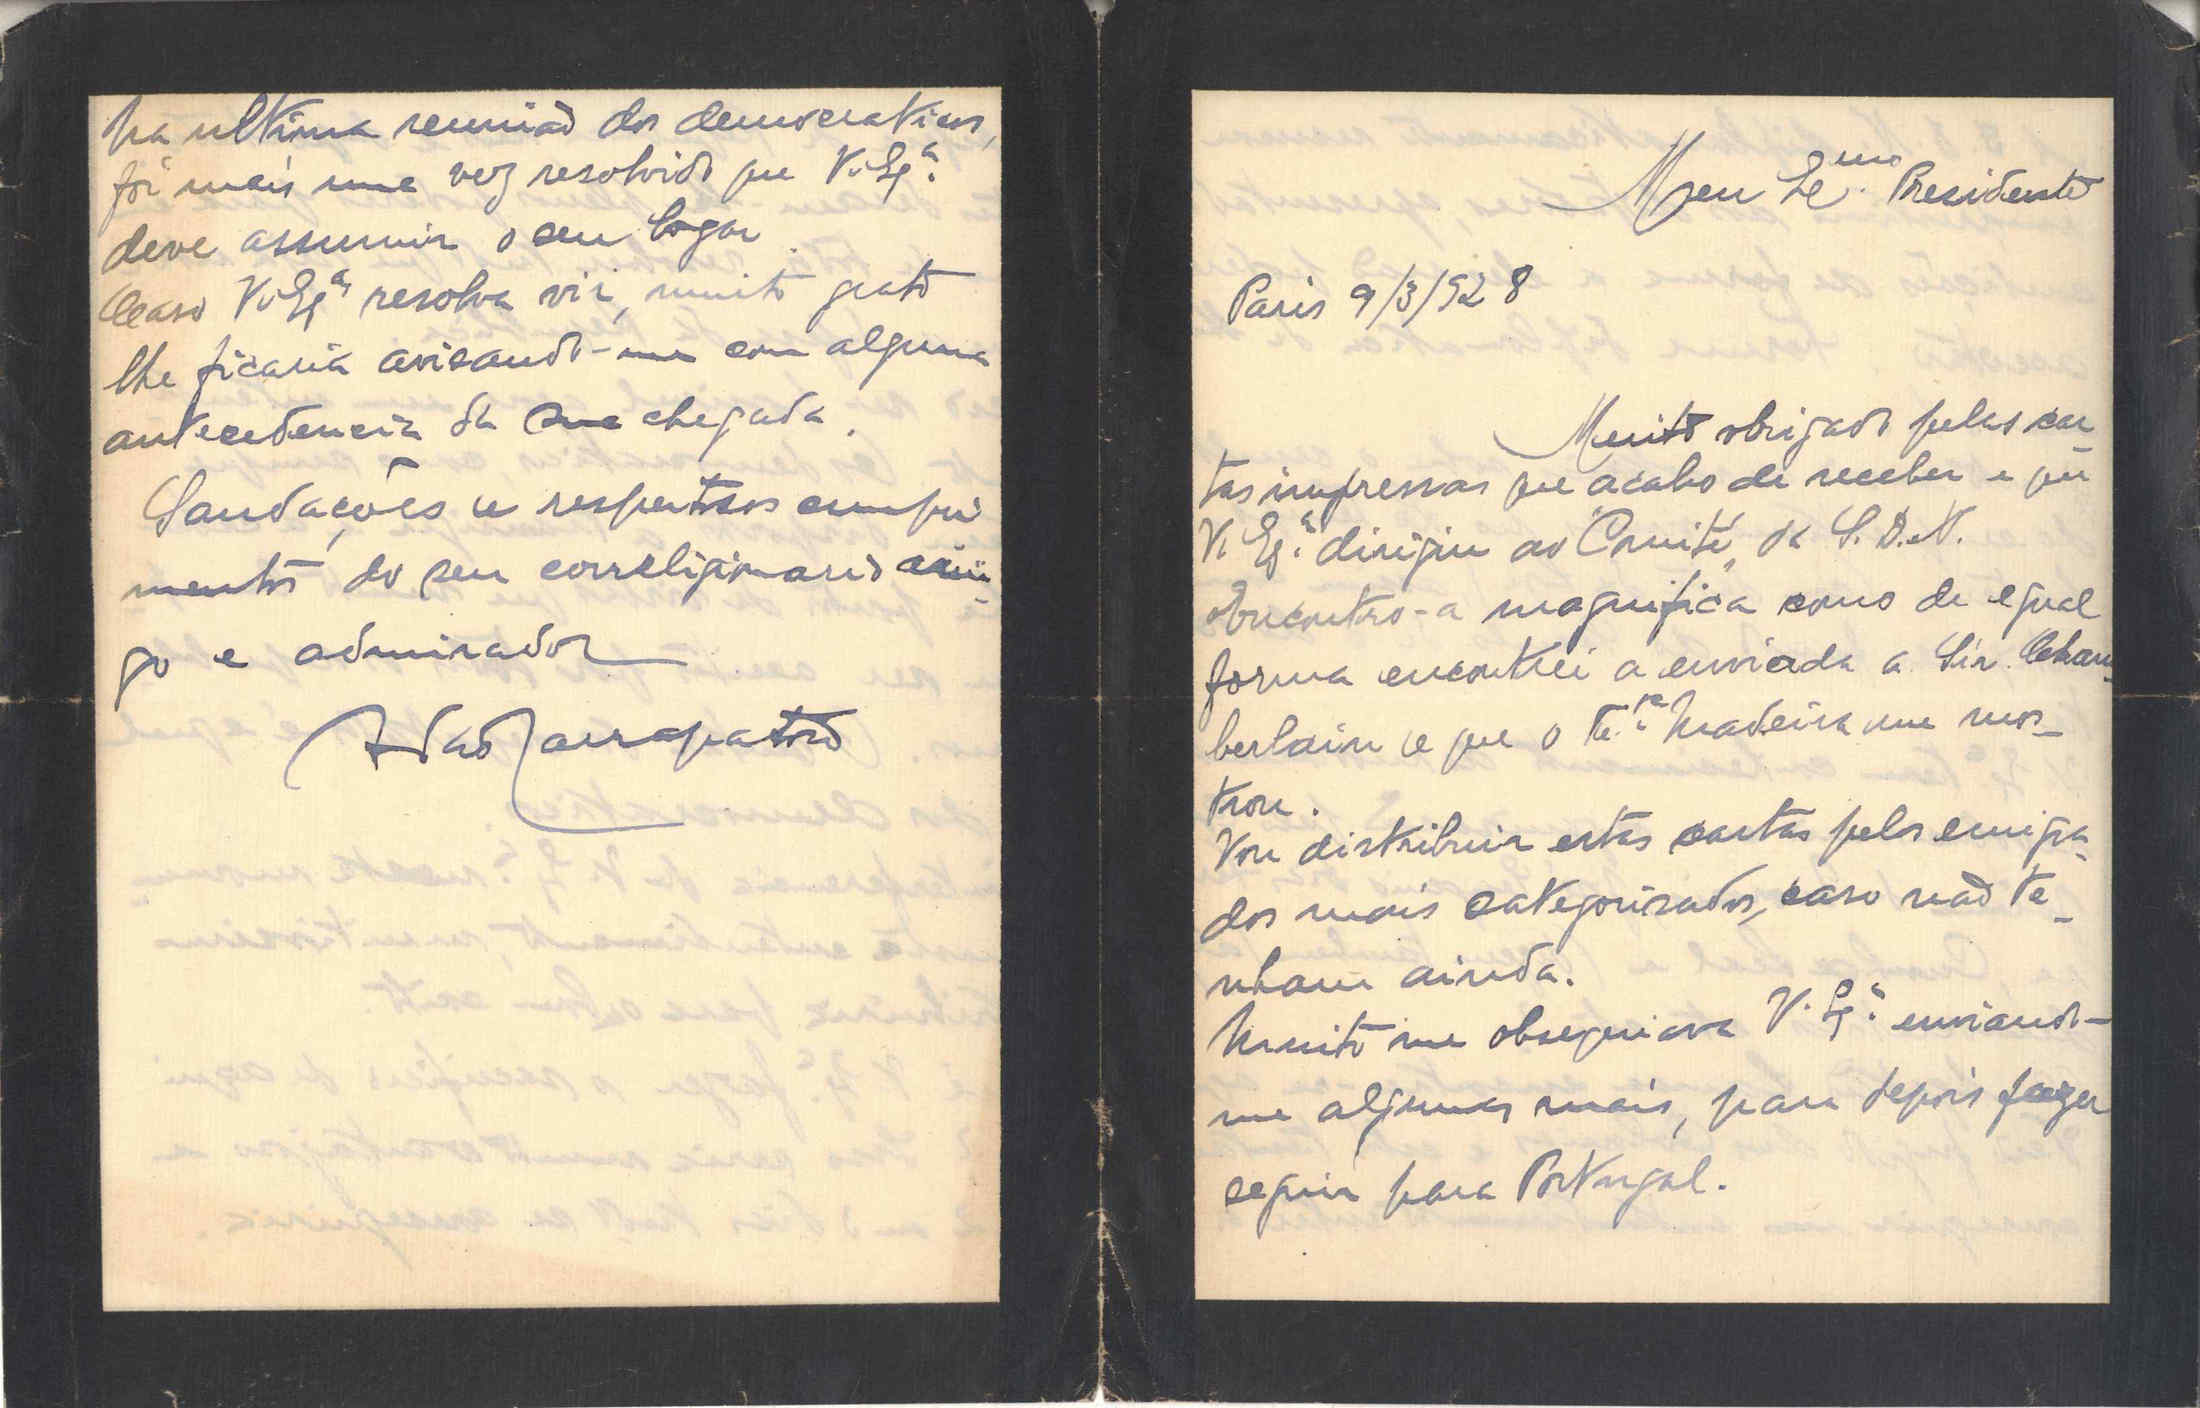 Meu Ex.mo Presidente
Paris 9/3/928
Muito obrigado pelas car-
tas impressas que acabo de receber e que
V. Ex.ª dirigiu ao "Comité" da S.D.N.
Encontro-a magnifica como de egual
forma encontrei a enviada a Sir. Cham-
berlain e que o Te.ne Madeira me mos-
trou.
Vou distribuir estas cartas pelos emigra-
dos mais categorisados, caso não te-
nham ainda.
Muito me obsequiava V. Ex.ª enviando-
me algumas mais, para depois fazer
seguir para Portugal.
Na ultima reunião dos democraticos,
foi mais uma vez resolvido que V. Ex.ª
deve assumir o seu logar
Caso V. Ex.ª resolva vir, muito grato
lhe ficaria avisando-me com alguma
antecedencia da sua chegada.
Saudações e respeitosos cumpri
mentos do seu correligionario ami-
go e admirador